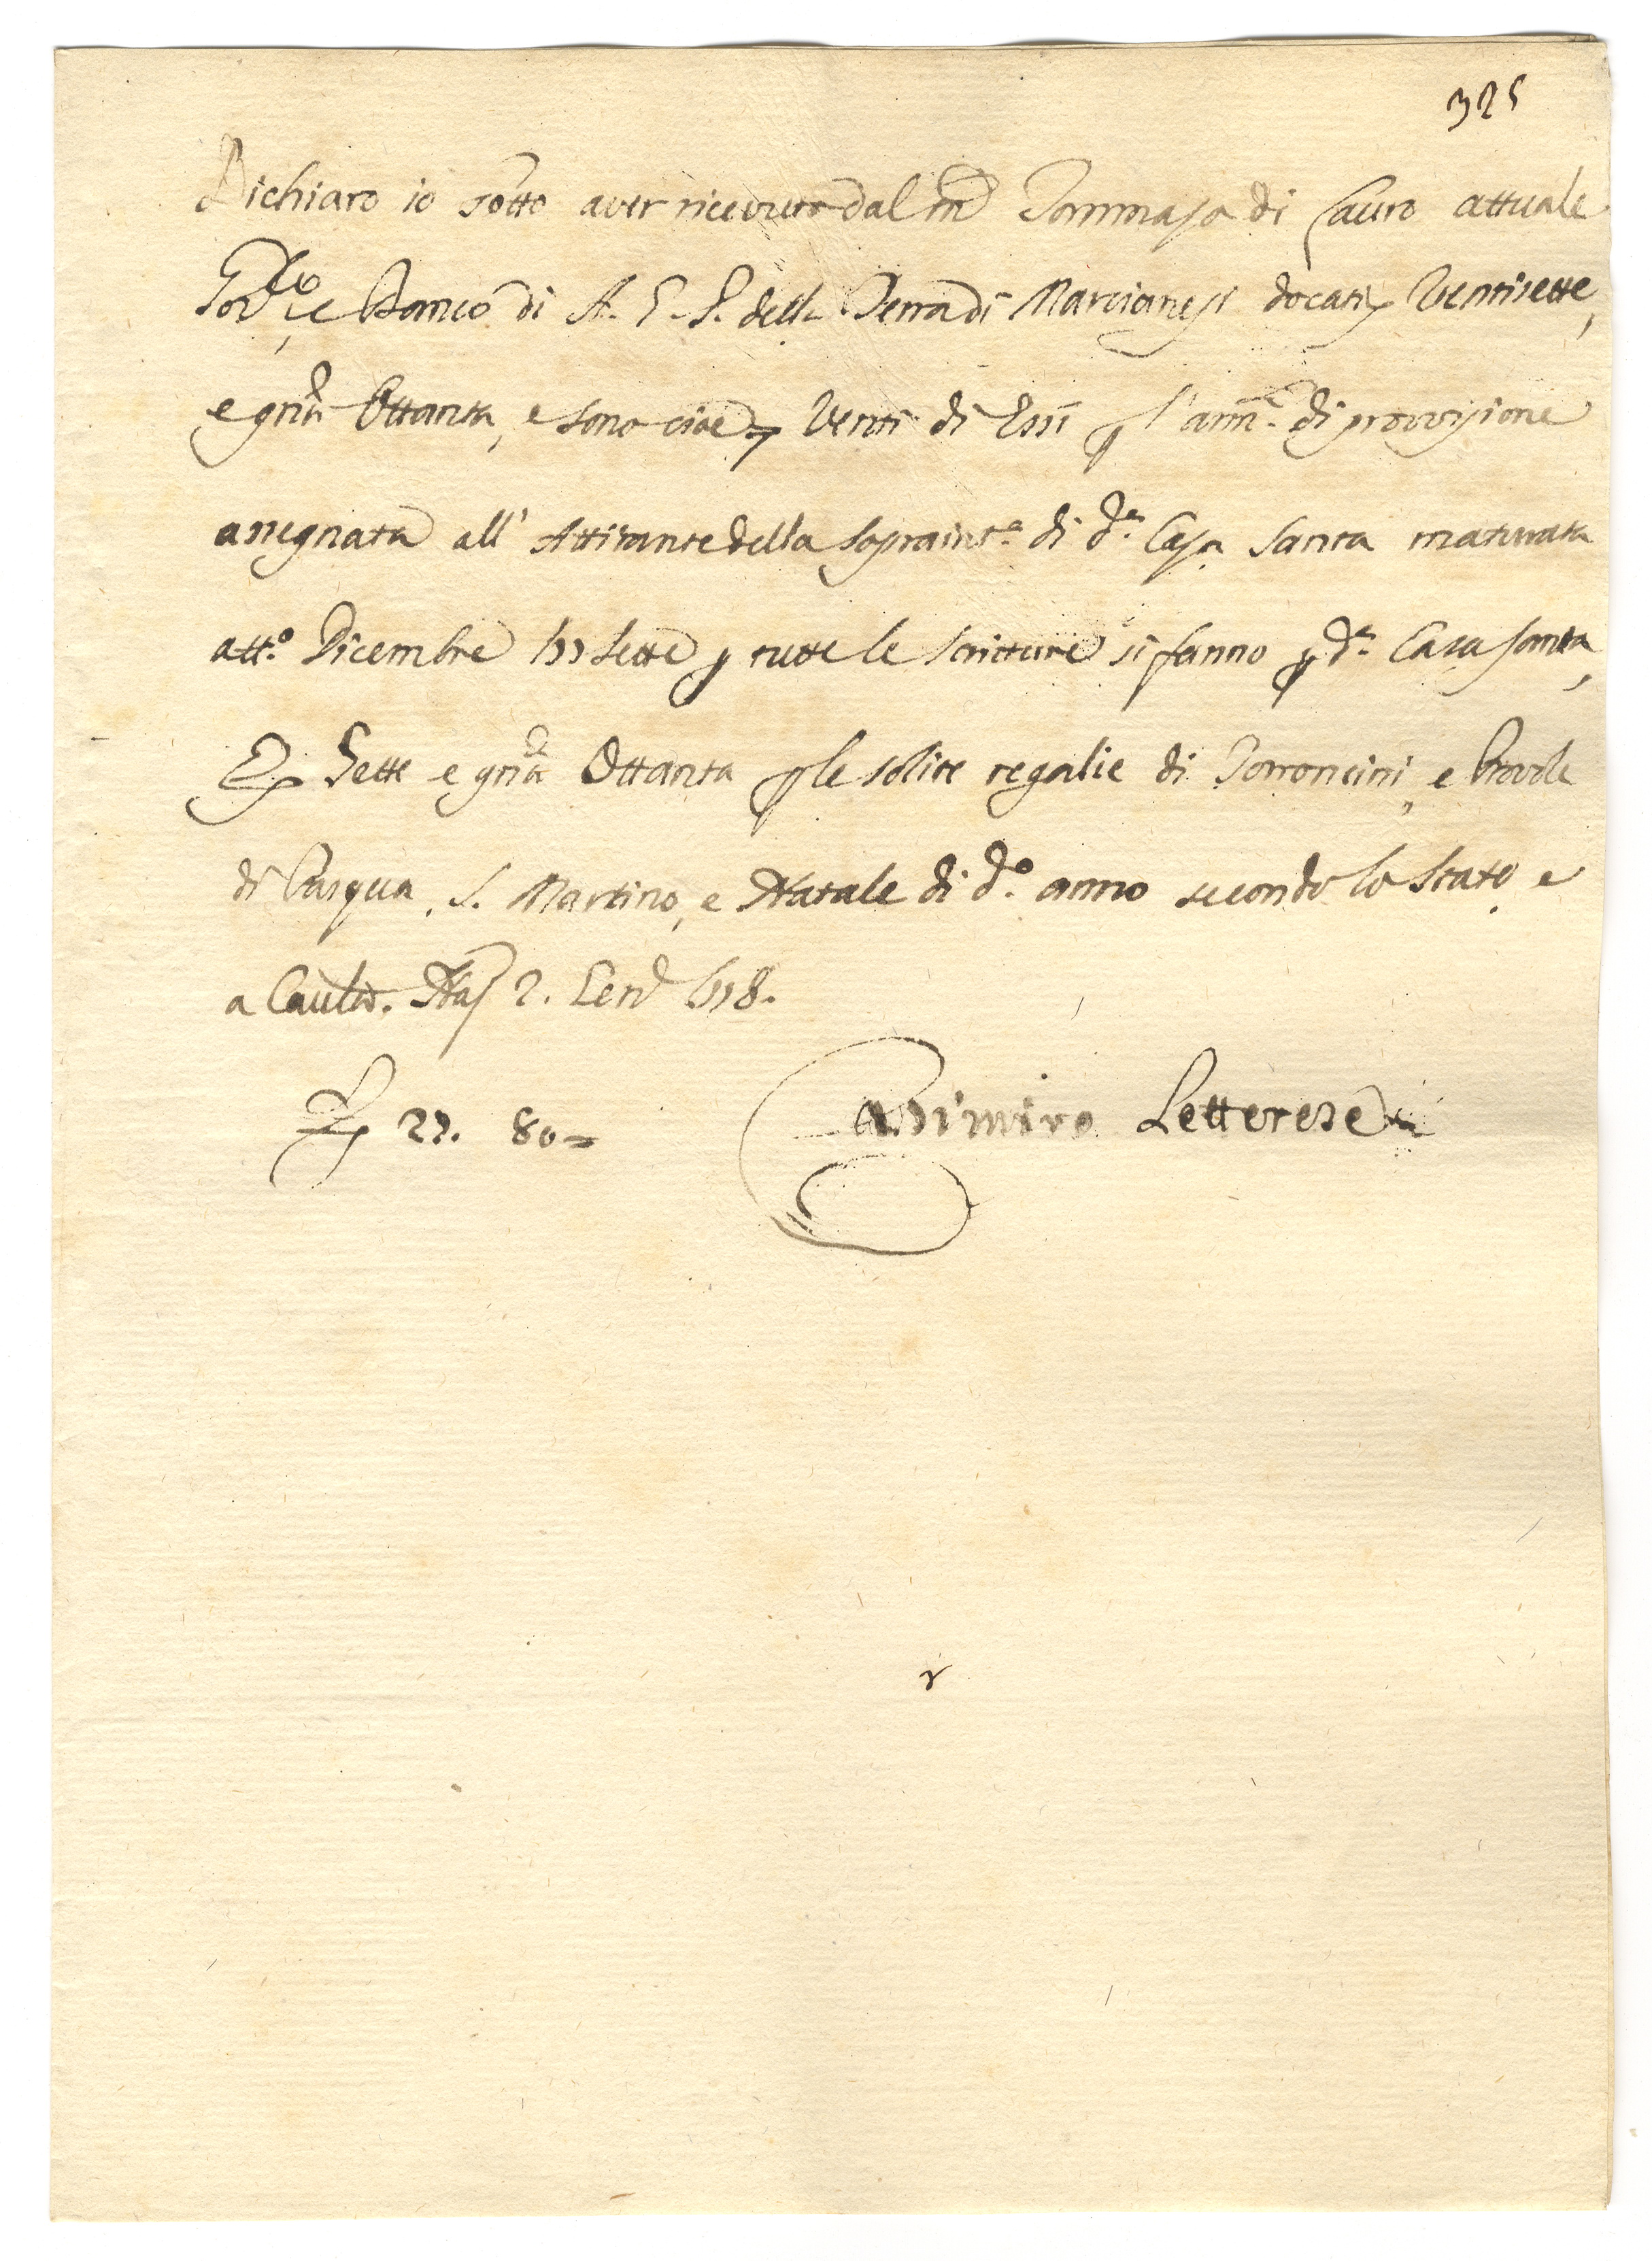 325
Dichiaro io sotto aver ricevuto dal m.co Tommaso di Lauro attuale
Gov.re, e Banco di A. G. P. della Terra di Marcianesi docati Ventisette,
e grna Ottanta, e sono cioè Venti di Essi p l'ann. di provvisione
assegnata all' Attitante della sopraint.a di d.a Casa Santa maturata
att.o Dicembre 177sette p tutte le scritture si fanno p d.a Casa Santa,
E Sette e grna Ottanta p le solite regalie di Torroncini, e Provole
di Pasqua, S. Martino, e Natale di d.o anno secondo lo Stato, e
a Cautela. Nap 2. Gen 1778.
27. 80=
Casimiro Letterese